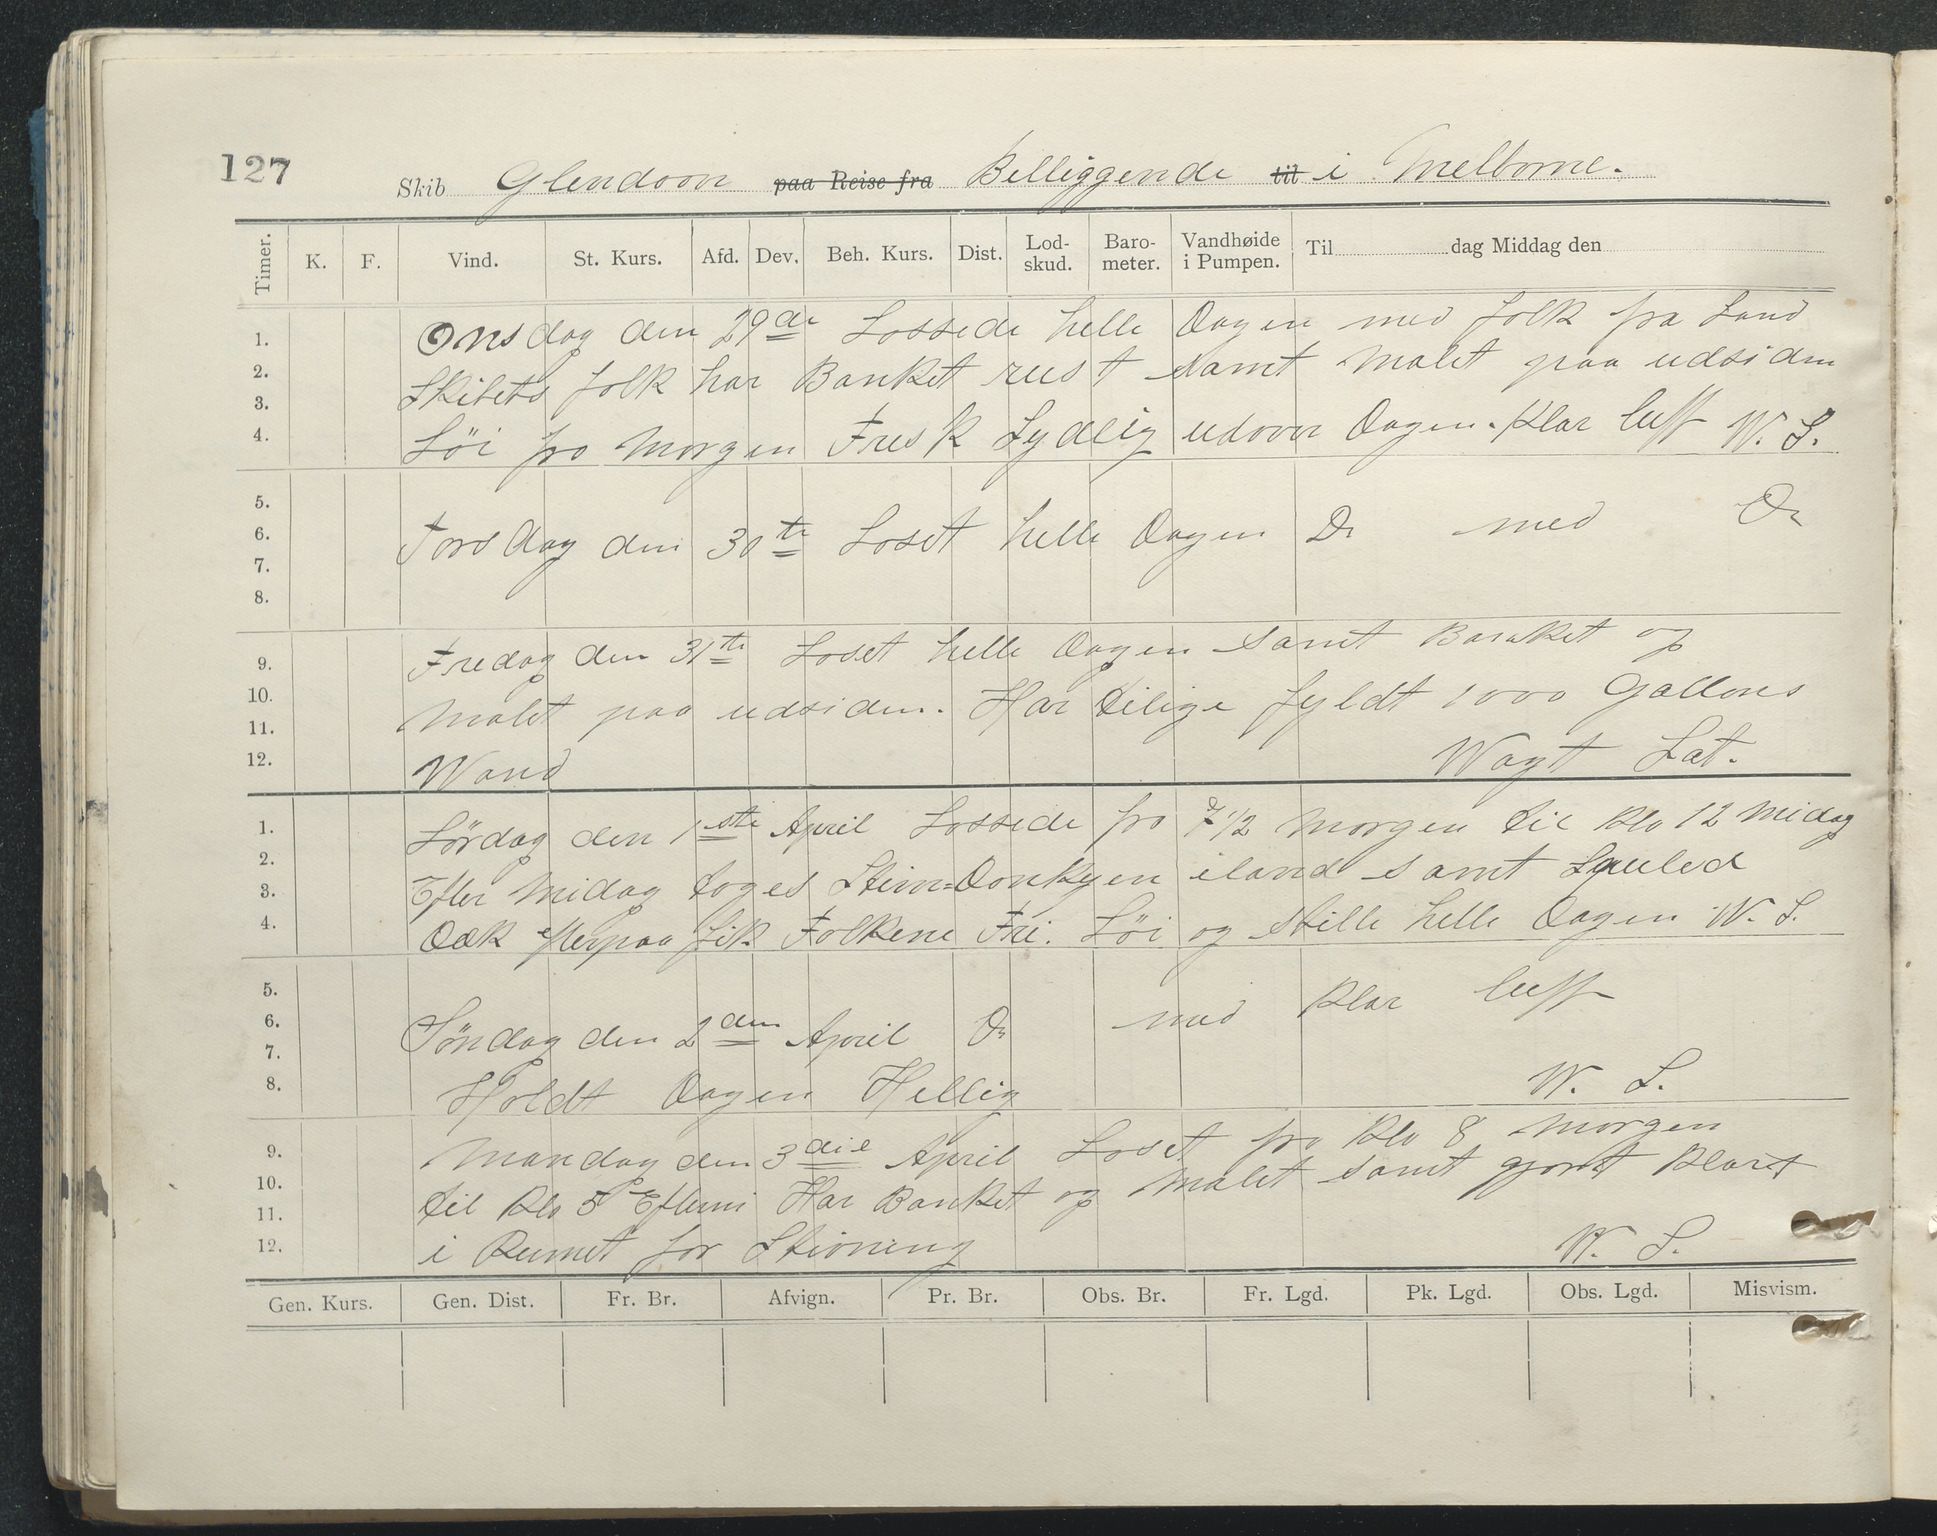 127
Skib Glendoon paa Reise fra Billiggende til i Melborne.
Timer. K. F. Vind. St. Kurs. Afd. Dev. Beh. Kurs. Dist. Lod-skud. Baro-meter. Vandhøide i Pumpen. Til dag Middag den
1. Onsdag den 29de Lossede helle Dagen med folk fra Land
2. Skibets folk har Banket rust samt Malet paa udsiden
3.
4. Löi fra Morgen Frisk Sydlig udover Dagen. Klar luft W. L.
5.
6. Torsdag den 30te Loset helle Dagen Do med Do
7.
8.
9. Fredag den 31te Loset helle Dagen samt Banket og
10. Malet paa udsiden. Har tilige fyldt 1000 Gallons
11.
12. Wand Wagt Lat.
1. Lördag den 1ste April Lossede fra 7 1/2 Morgen til Klo 12 Midag
2.
3. Efter Midag toges Stim=Donkyen iland samt Spuled
4. Dæk efterpaa fik Folkene Fri. Löi og stille helle Dagen W. L.
5.
6. Söndag den 2den April Do med Klar luft
7.
8. Holdt Dagen Hellig W. L.
9. Mandag den 3die April Loset fra Klo 8 Morgen
10. til Klo 5 Eftermi Har Banket og Malet samt gjort Klart
11.
12. i Rumet for Stivning W. L.
Gen. Kurs. Gen. Dist. Fr. Br. Afvign. Pr. Br. Obs. Br. Fr. Lgd. Pk. Lgd. Obs. Lgd. Misvism.